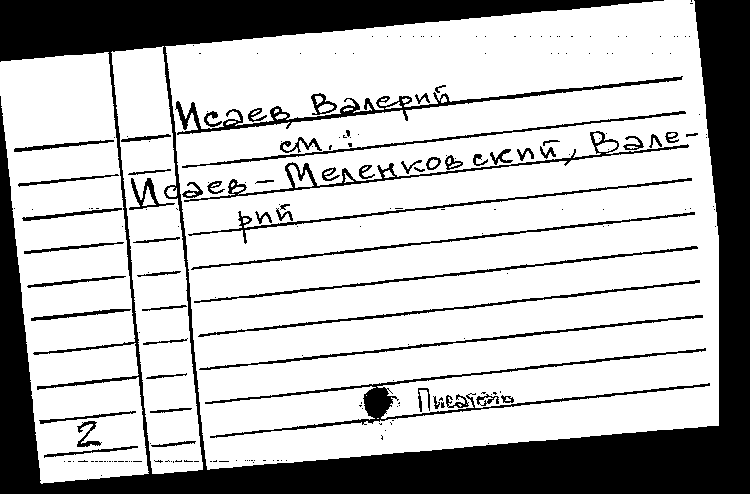 Исаев, Валерий
см.:
Исаев-Меленковский, Вале-
рий
Писатель
2